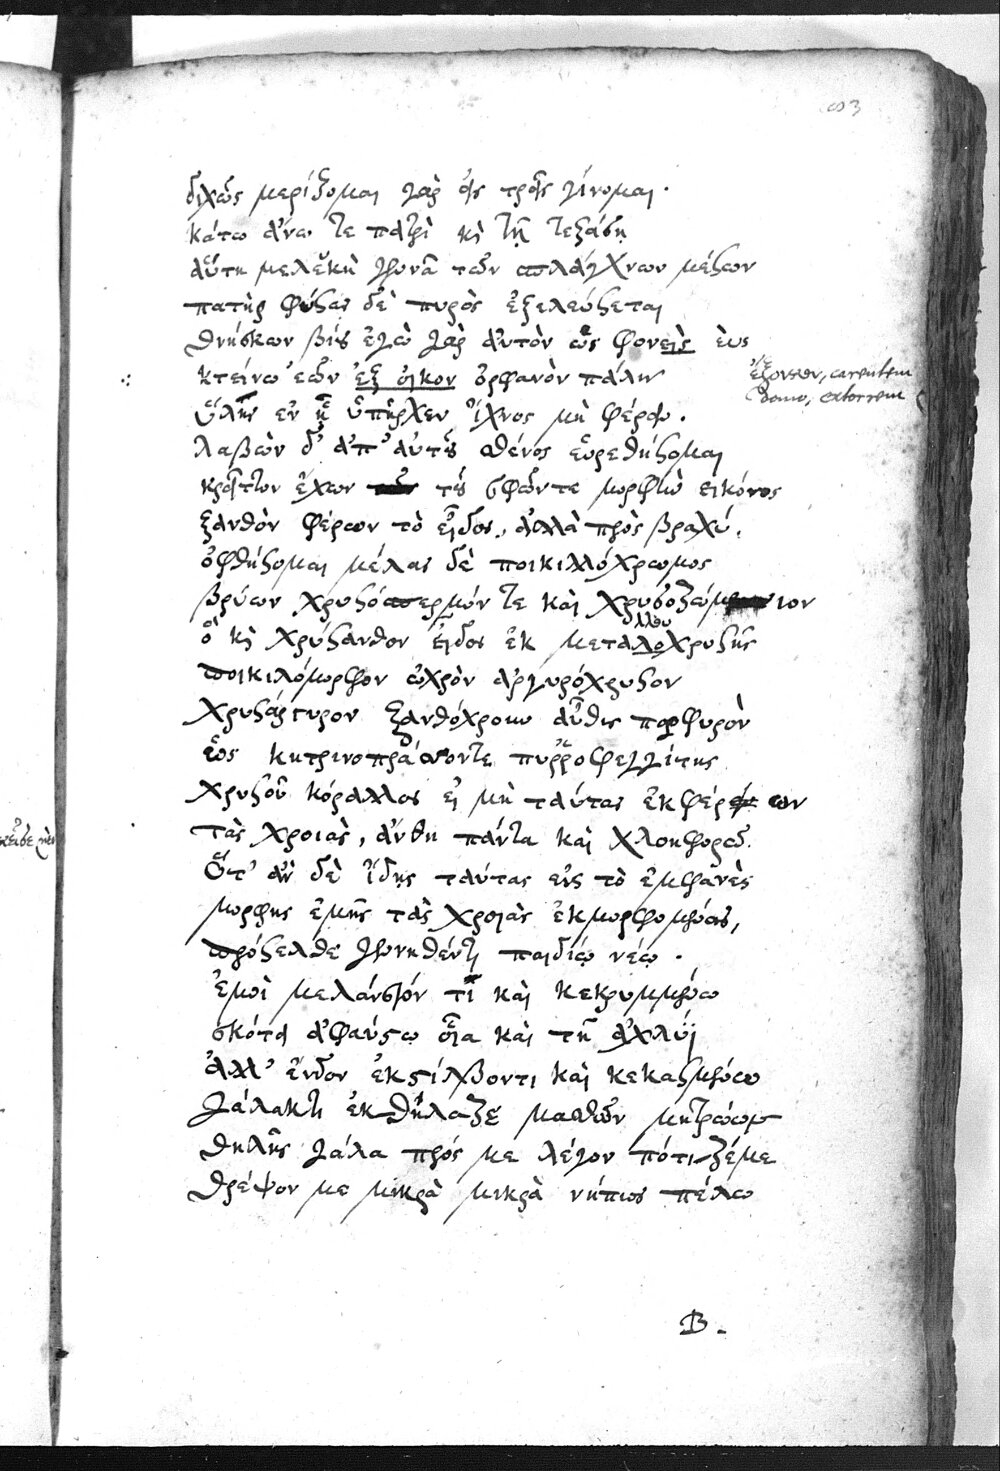 διχῶς μερίζομαι γὰρ εἰς τρεῖς γίνομαι.
κάτω ἄνω τε πατρὶ κὶ τῇ τεξάσῃ
αὕτη με λευκὴ γεννᾷ τῶν σπλάγχνων μέσων
πατὴρ φύσας δὲ πυρὸς ἐξελεύσεται
θνήσκων βίῳ ἐγὼ γὰρ αὐτὸν ὡς φονεὺς
κτείνω ἐῶν ἐξ οἶκον ὀρφανὸν πάλιν
ἔξοικον, carentem
domo, extorrem
ὕλης ἐν ᾗ ὑπῆρχεν ἴχνος μὴ φέρων.
λαβὼν δ' ἀπ' αὐτῆς σθένος εὑρεθήσομαι
κρεῖττον ἔχων τῆς σφῶν τε μορφὴν εἰκόνος
ξανθὸν φέρων τὸ εἶδος, ἀλλὰ πρὸς βραχύ,
ὀφθήσομαι μέλας δὲ ποικιλλόχρωμος
βρύων χρυσόσπερμόν τε καὶ χρυσοζώμιον
ὁ κὶ χρύσανθον εἶδος ἐκ μεταλοχρυσῆς
λλου
ποικιλόμορφον ὠχρὸν ἀργυρόχρυσον
χρυσάργυρον ξανθόχροιον αὖθις πορφυρὸν
ἕως κητρινοπράσοντε πυρροφεγγίτης
χρυσοῦ κόραλλος εἰ μὴ ταύτας ἐκφέρων
τὰς χροιὰς, ἄνθη πάντα καὶ χλοηφορῶ.
Ὅτ' ἂν δὲ ἴδῃς ταύτας εἰς τὸ ἐμφανὲς
μορφῆς ἐμῆς τὰς χροιὰς ἐκμορφουμένας,
πρόσελθε γεννηθέντι παιδίῳ νέῳ.
ἐμοὶ μελάντιόν τι καὶ κεκρυμμένῳ
σκότει ἀφαύστῳ οἷα καὶ τῇ ἀχλύι
ἀλλ' ἔνδον ἐκστίλβοντι καὶ κεκασμένῳ
γάλακτι ἐκθήλαζε μασθῶν μητρώων
θηλῆς γάλα πρός με λέγον πότιζέ με
θρέψον με μικρὰ μικρὰ νήπιος πέλω
B.